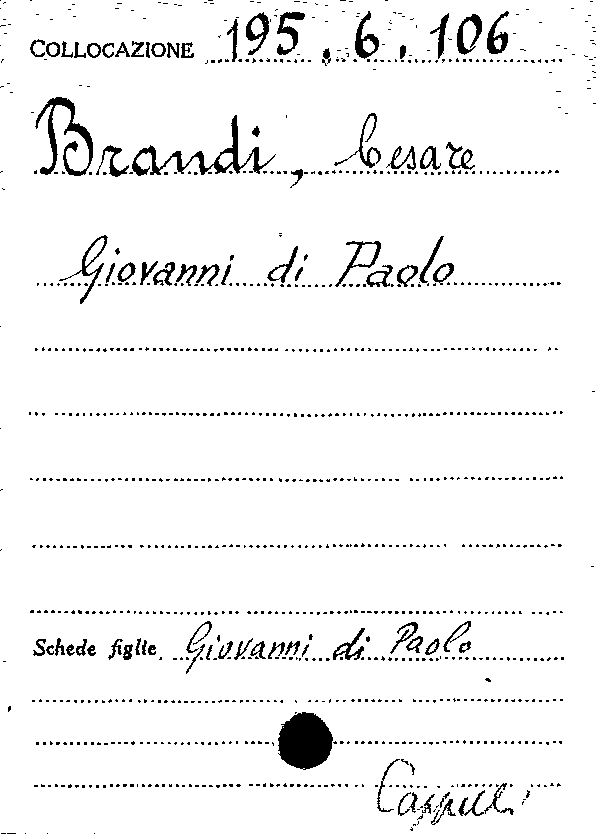 COLLOCAZIONE 195.6.106
Brandi, Cesare
Giovanni di Paolo
Schede figlie Giovanni di Paolo